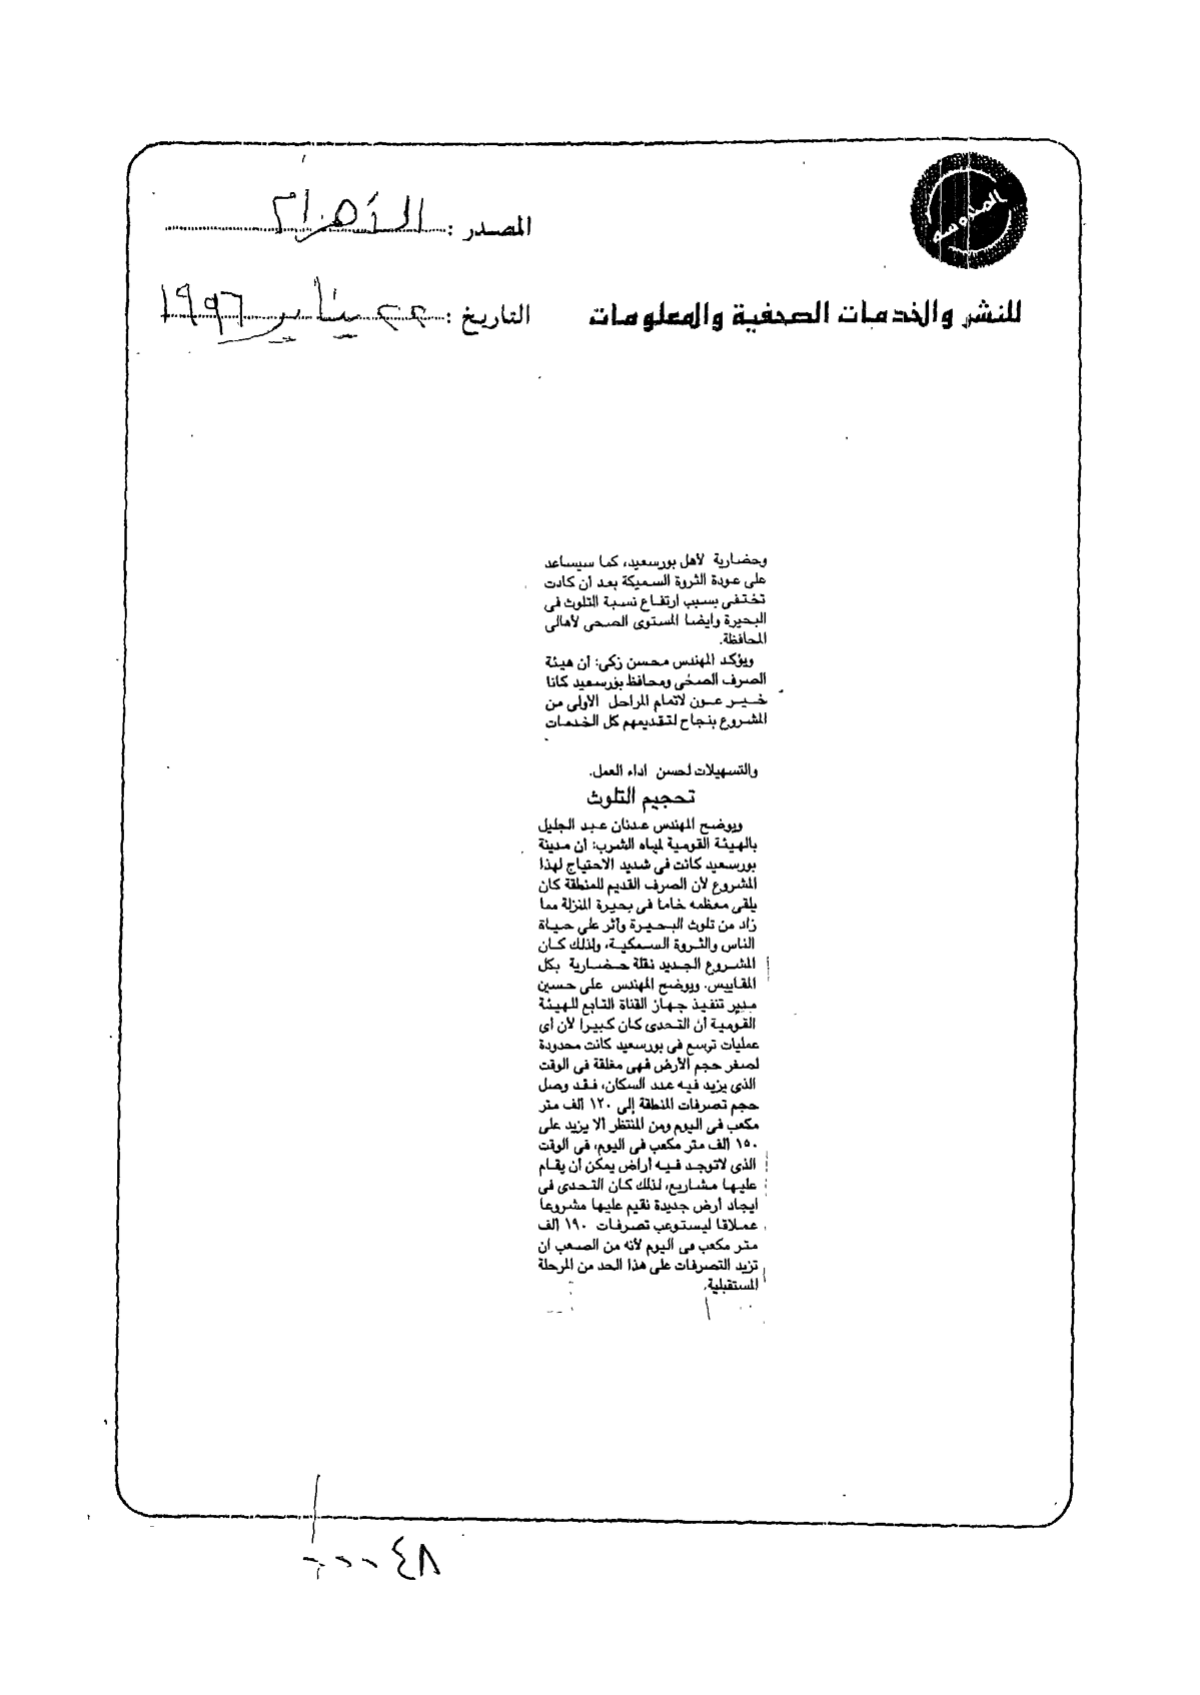 المحروسة
المصدر : الأهرام
للنشر والخدمات الصحفية والمعلومات
التاريخ : ٢٢ يناير ١٩٩٦
وحضارية لأهل بورسعيد، كما سيساعد
على عودة الثروة السميكة بعد أن كادت
تختفى بسبب ارتفاع نسبة التلوث فى
البحيرة وايضا المستوى الصحى لأهالى
المحافظة.
ويؤكد المهندس محسن زكى: أن هيئة
الصرف الصحى ومحافظ بورسعيد كانا
خير عون لاتمام المراحل الأولى من
المشروع بنجاح لتقديمهم كل الخدمات
والتسهيلات لحسن اداء العمل.
تحجيم التلوث
ويوضح المهندس عدنان عبد الجليل
بالهيئة القومية لمياه الشرب: أن مدينة
بورسعيد كانت فى شديد الاحتياج لهذا
المشروع لأن الصرف القديم للمنطقة كان
يلقى معظمه خاما فى بحيرة المنزلة مما
زاد من تلوث البحيرة وأثر على حياة
الناس والثروة السمكية، ولذلك كان
المشروع الجديد نقلة حضارية بكل
المقاييس. ويوضح المهندس على حسين
مدير تنفيذ جهاز القناة التابع للهيئة
القومية أن التحدى كان كبيرا لأن أى
عمليات توسع فى بورسعيد كانت محدودة
لصغر حجم الأرض فهى مغلقة فى الوقت
الذى يزيد فيه عدد السكان، فقد وصل
حجم تصرفات المنطقة إلى ١٢٠ ألف متر
مكعب فى اليوم ومن المنتظر ألا يزيد على
١٥٠ ألف متر مكعب فى اليوم، فى الوقت
الذى لاتوجد فيه أراض يمكن أن يقام
عليها مشاريع، لذلك كان التحدى فى
ايجاد أرض جديدة نقيم عليها مشروعا
عملاقا ليستوعب تصرفات ١٩٠ ألف
متر مكعب فى اليوم لأنه من الصعب أن
تزيد التصرفات على هذا الحد من المرحلة
المستقبلية.